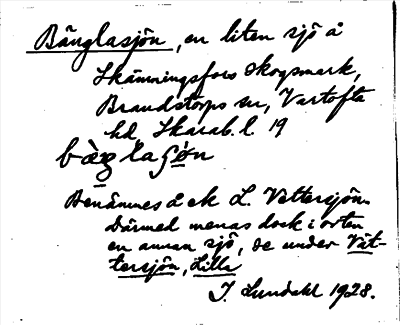 Bänglasjön, en liten sjö å
Skämningsfors skogsmark,
Brandstorps sn, Vartofta
hd, Skarab. l 19
Benämnes d ek L. Vättersjön.
Därmed menas dock i orten
en annan sjö, se under Vät-
tersjön, Lilla
J. Lundahl 1928.